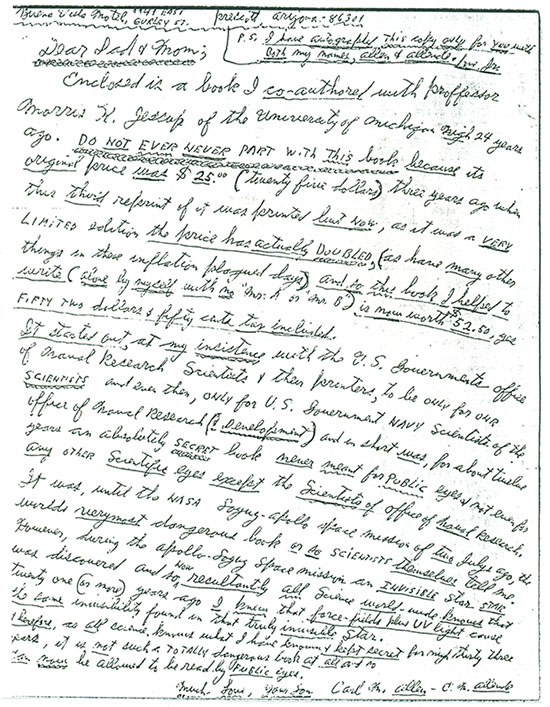 Buena Vista Motel, 1147 EAST GURLEY ST. prescott arizona - 86301
P.S. I have autographed This copy only for you with
both my names, allen & allende.
Dear Dad & Mom;
Enclosed is a book I co-authored with proffessor
Morris K. Jessup of the University of Michigan nigh 24 years
ago. DO NOT EVER NEVER PART with THIS book because its
original price was $ 25.00 (twenty five dollars) three years ago when
this third reprint of it was printed but now, as it was a VERY
LIMITED edition the price has actually DOUBLED, (as have many other
things in these inflation plagued days) and so this book I helped to
write (alone by myself with no "Mr. A or Mr. B") is now worth $52.50 yes
FIFTY TWO dollars & fifty cents tax included.
It started out at my insistence with the U.S. Governments office
of Naval Research Scientists & their printers, to be only for OUR
SCIENTISTS and even then, ONLY for U.S. Government NAVY Scientists of the
office of Naval Research (& Development) and in short was, for about twelve
years an absolutely SECRET book never meant for PUBLIC eyes & not even for
any OTHER Scientific eyes except the Scientists of office of Naval Research.
It was, until the NASA Soyuz-apollo space mission of two Julys ago, the
worlds verymost dangerous book or so SCIENTISTS themselves tell me.
However, during the apollo-Soyuz Space mission an INVISIBLE STAR
was discovered and so, NOW resultantly all Science world-wide knows that
twenty one (or more) years ago I knew that force-fields plus UV light cause
the same invisibility found in that truly invisible Star.
Therefore, as all science knows what I have known & kept secret for nigh thirty three
years, it is not such a TOTALLY dangerous book at all and so
can now be allowed to be read by PUBLIC eyes.
Much Love, Your Son Carl M. Allen - C. M. allende